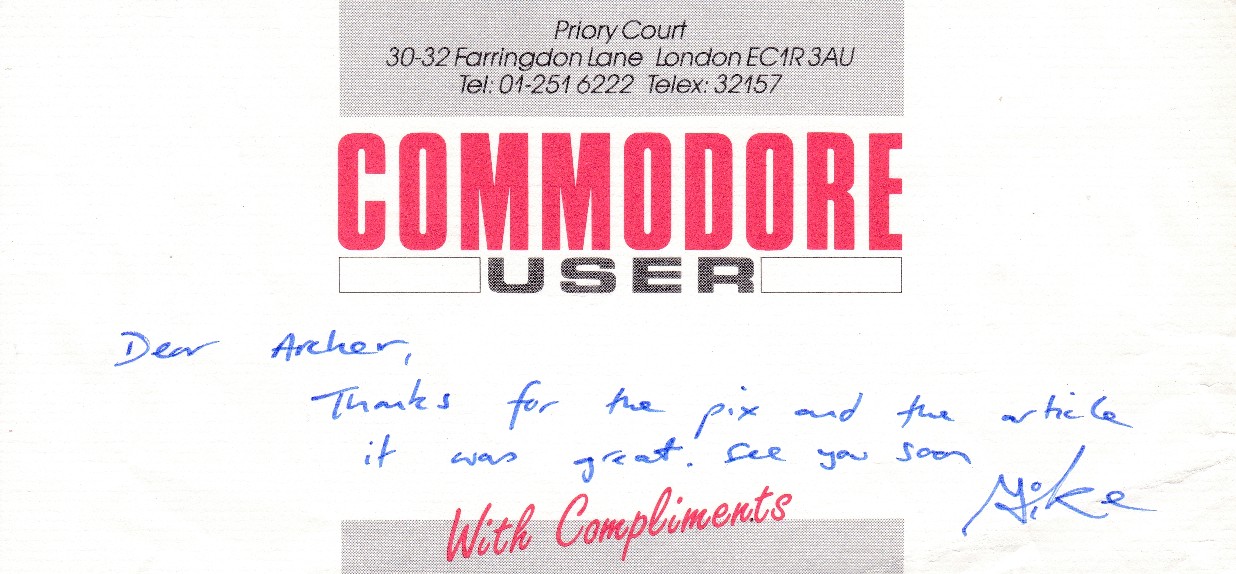 Priory Court
30-32 Farringdon Lane London EC1R 3AU
Tel: 01-251 6222 Telex: 32157
COMMODORE
USER
Dear Archer,
Thanks for the pix and the article
it was great. See you soon
Mike
With Compliments